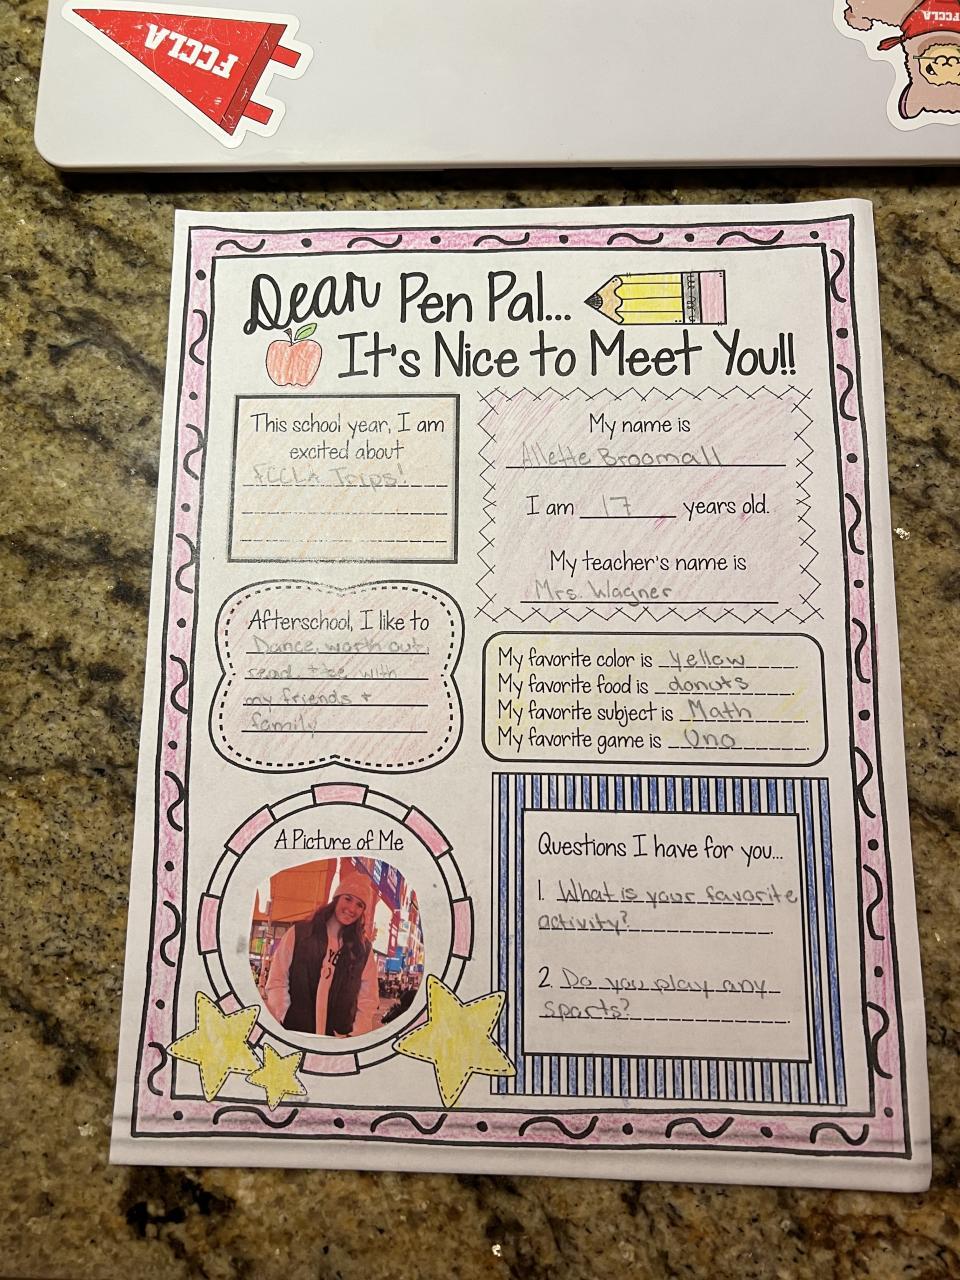 FCCLA
FCCLA
Dear Pen Pal...
It's Nice to Meet You!!
This school year, I am
excited about
FCCLA Trips!
My name is
Allette Broomall
I am 17 years old.
My teacher's name is
Mrs. Wagner
Afterschool, I like to
Dance, worth out,
read, + be with
my friends +
family
My favorite color is yellow.
My favorite food is donuts.
My favorite subject is Math.
My favorite game is Uno.
A Picture of Me
Questions I have for you...
1. What is your favorite
activity?
2. Do you play any
sports?